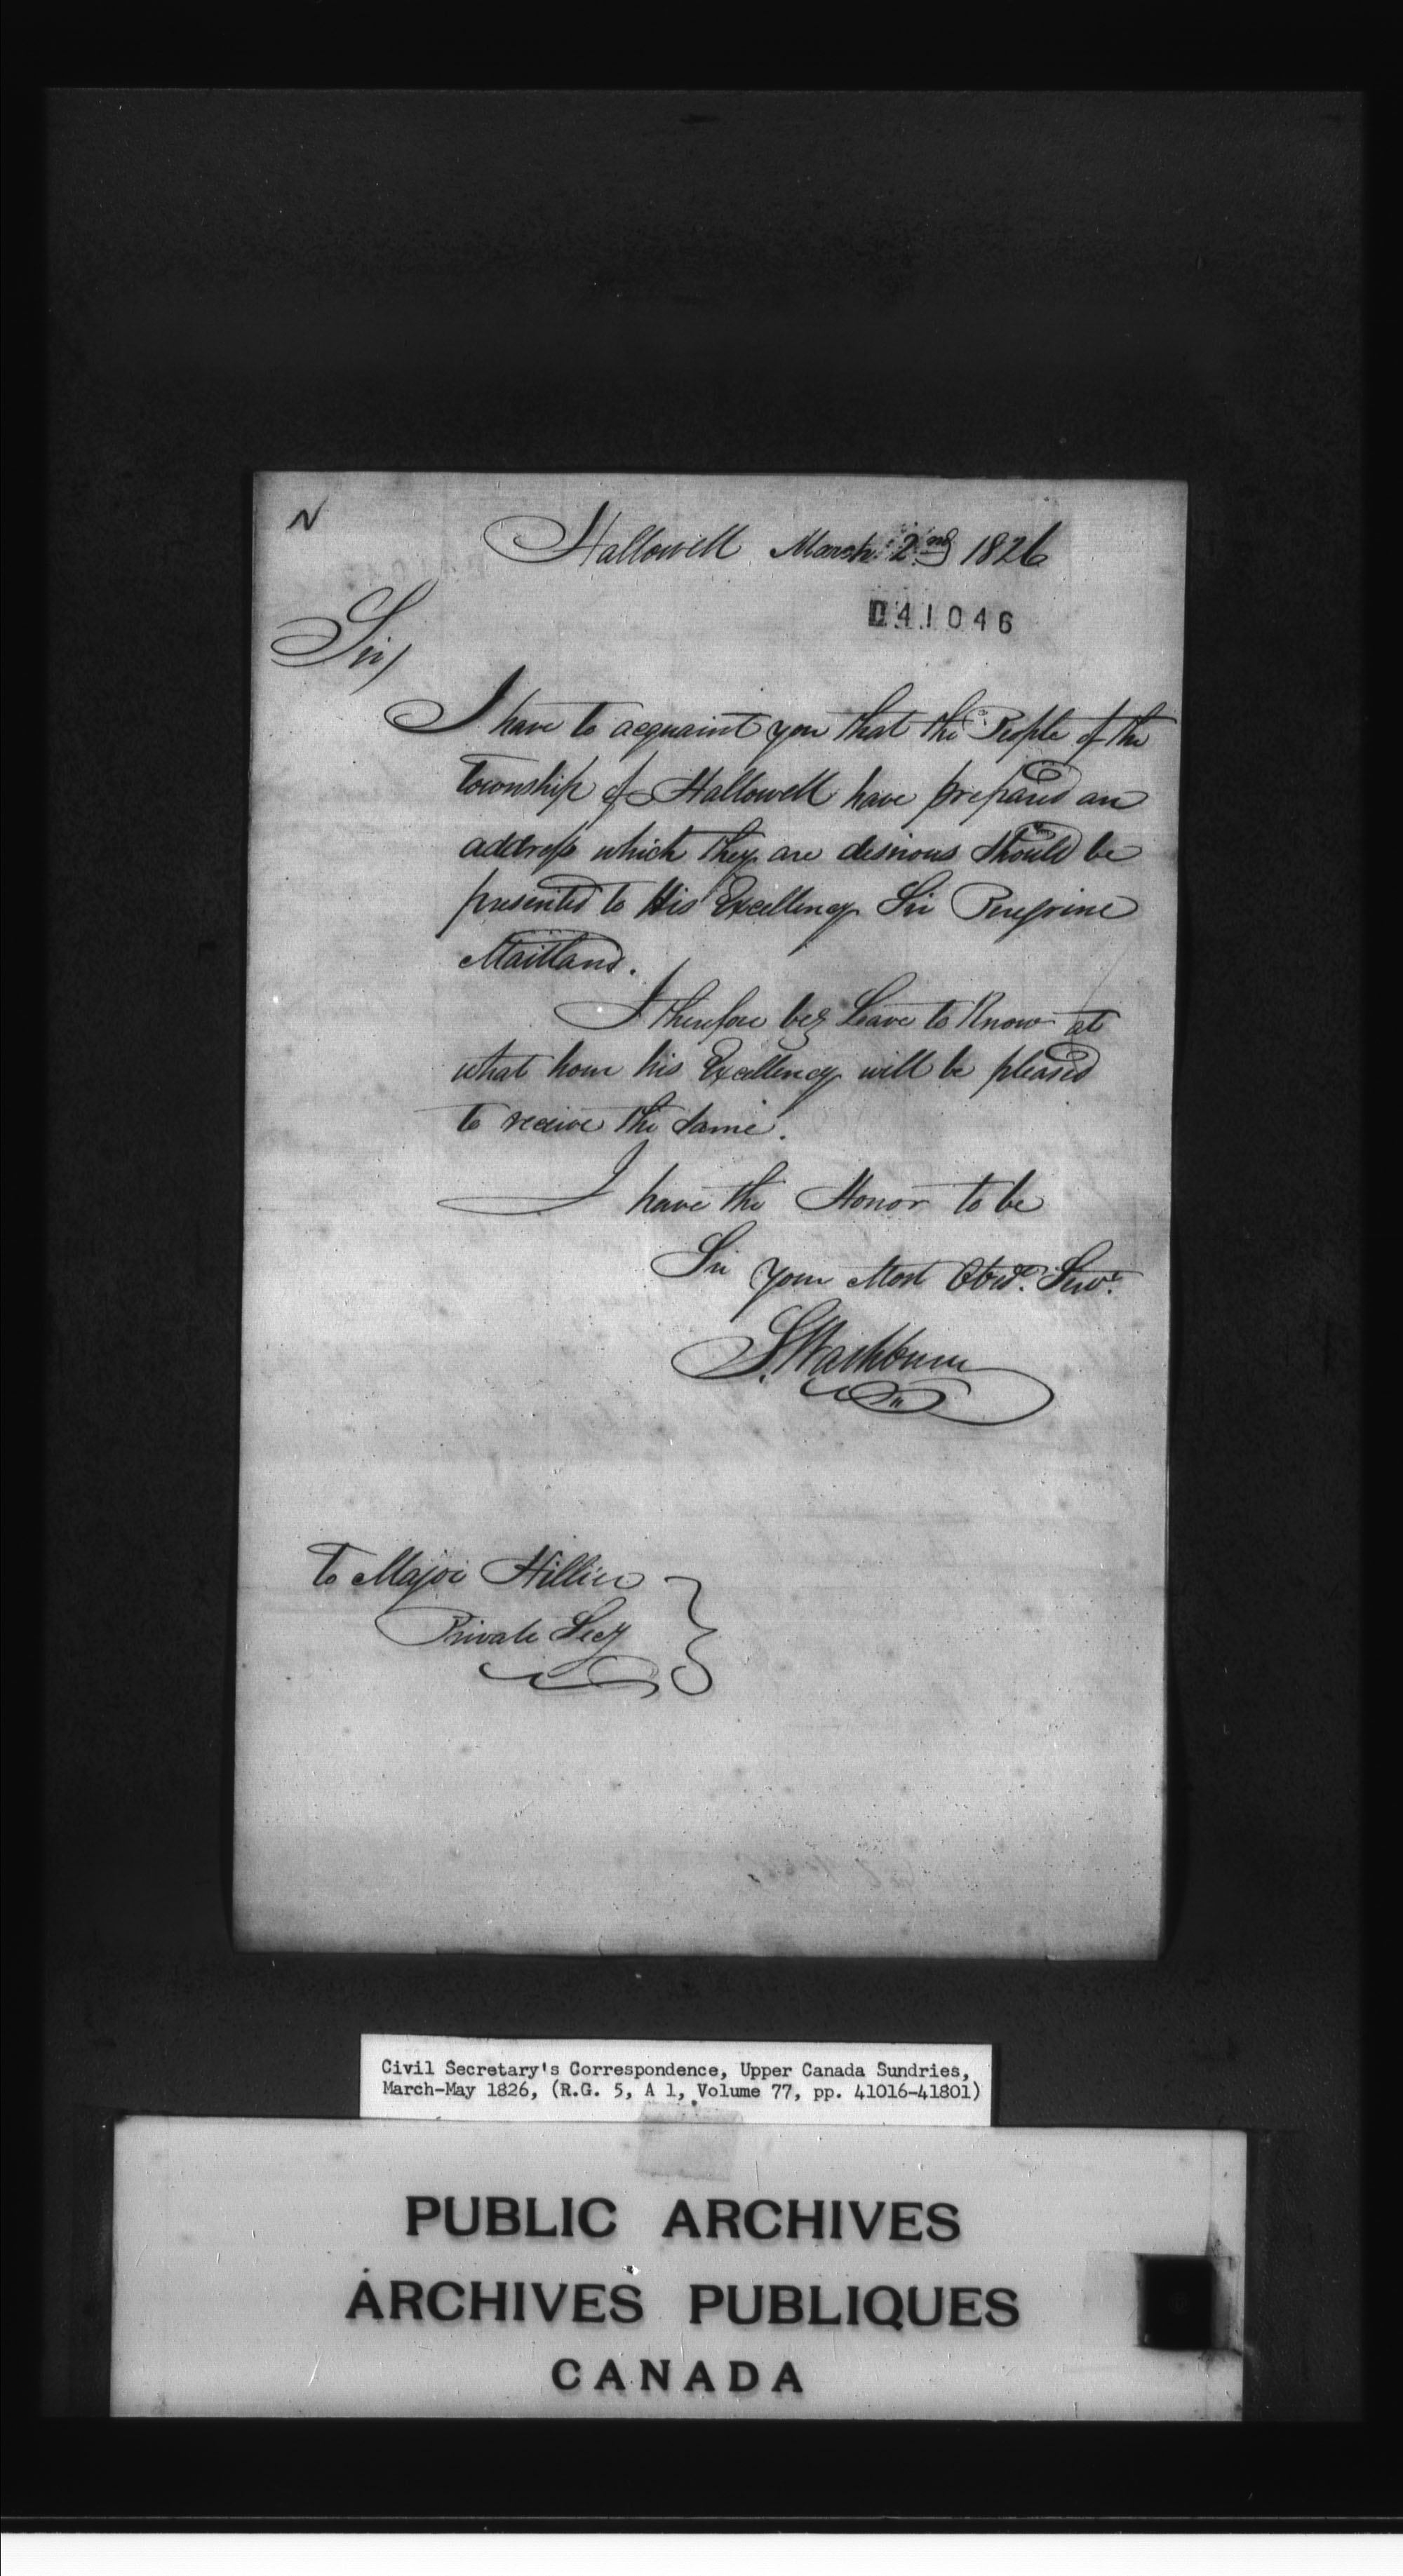 N
Hallowell March 2nd 1826
041046
Sir/
I have to acquaint you that the People of the
Township of Hallowell have prepared an
address which they are desirous should be
presented to His Excellency Sir Peregrine
Maitland.
I therefore beg Leave to Know at
what hour his Excellency will be pleased
to receive the same.
I have the Honor to be
Sir your Most Obedt. Servt.
S. Washburn
To Major Hillier
Private Secy
Civil Secretary's Correspondence, Upper Canada Sundries,
March-May 1826, (R.G. 5, A 1, Volume 77, pp. 41016-41801)
PUBLIC ARCHIVES
ARCHIVES PUBLIQUES
CANADA